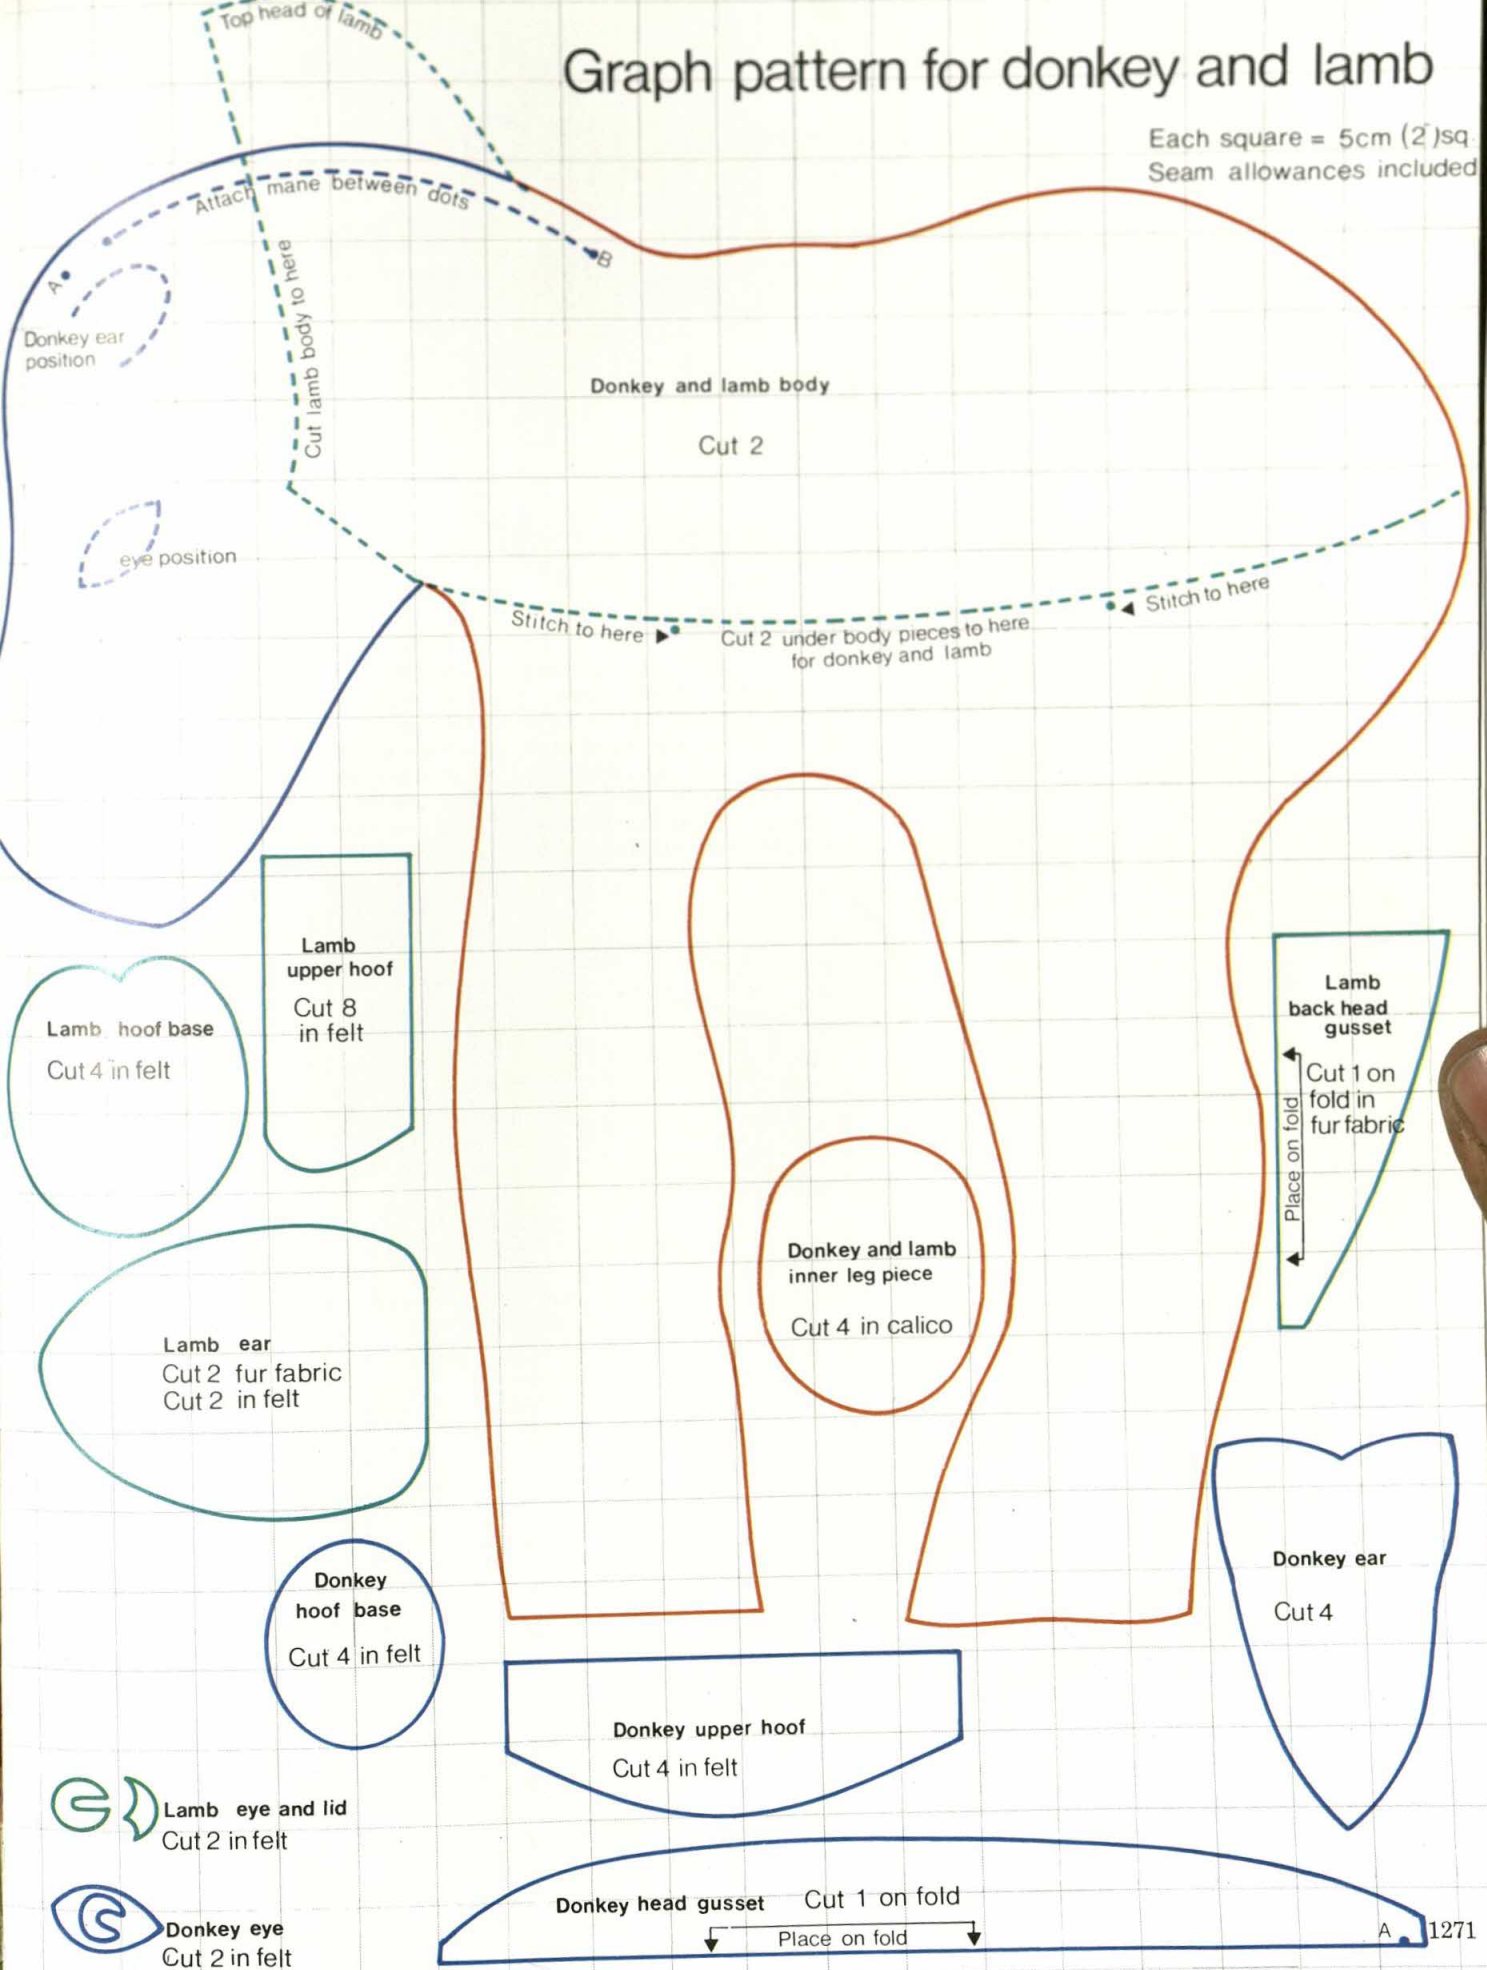 Top head of lamb
Graph pattern for donkey and lamb
Each square = 5cm (2")sq
Seam allowances included
Attach mane between dots
A
B
Donkey ear
position
Cut lamb body to here
Donkey and lamb body
Cut 2
eye position
Stitch to here
Cut 2 under body pieces to here
for donkey and lamb
Stitch to here
Lamb
upper hoof
Cut 8
in felt
Lamb hoof base
Cut 4 in felt
Lamb
back head
gusset
Cut 1 on
fold in
fur fabric
Place on fold
Donkey and lamb
inner leg piece
Cut 4 in calico
Lamb ear
Cut 2 fur fabric
Cut 2 in felt
Donkey
hoof base
Cut 4 in felt
Donkey ear
Cut 4
Donkey upper hoof
Cut 4 in felt
Lamb eye and lid
Cut 2 in felt
Donkey eye
Cut 2 in felt
Donkey head gusset Cut 1 on fold
Place on fold
A
1271